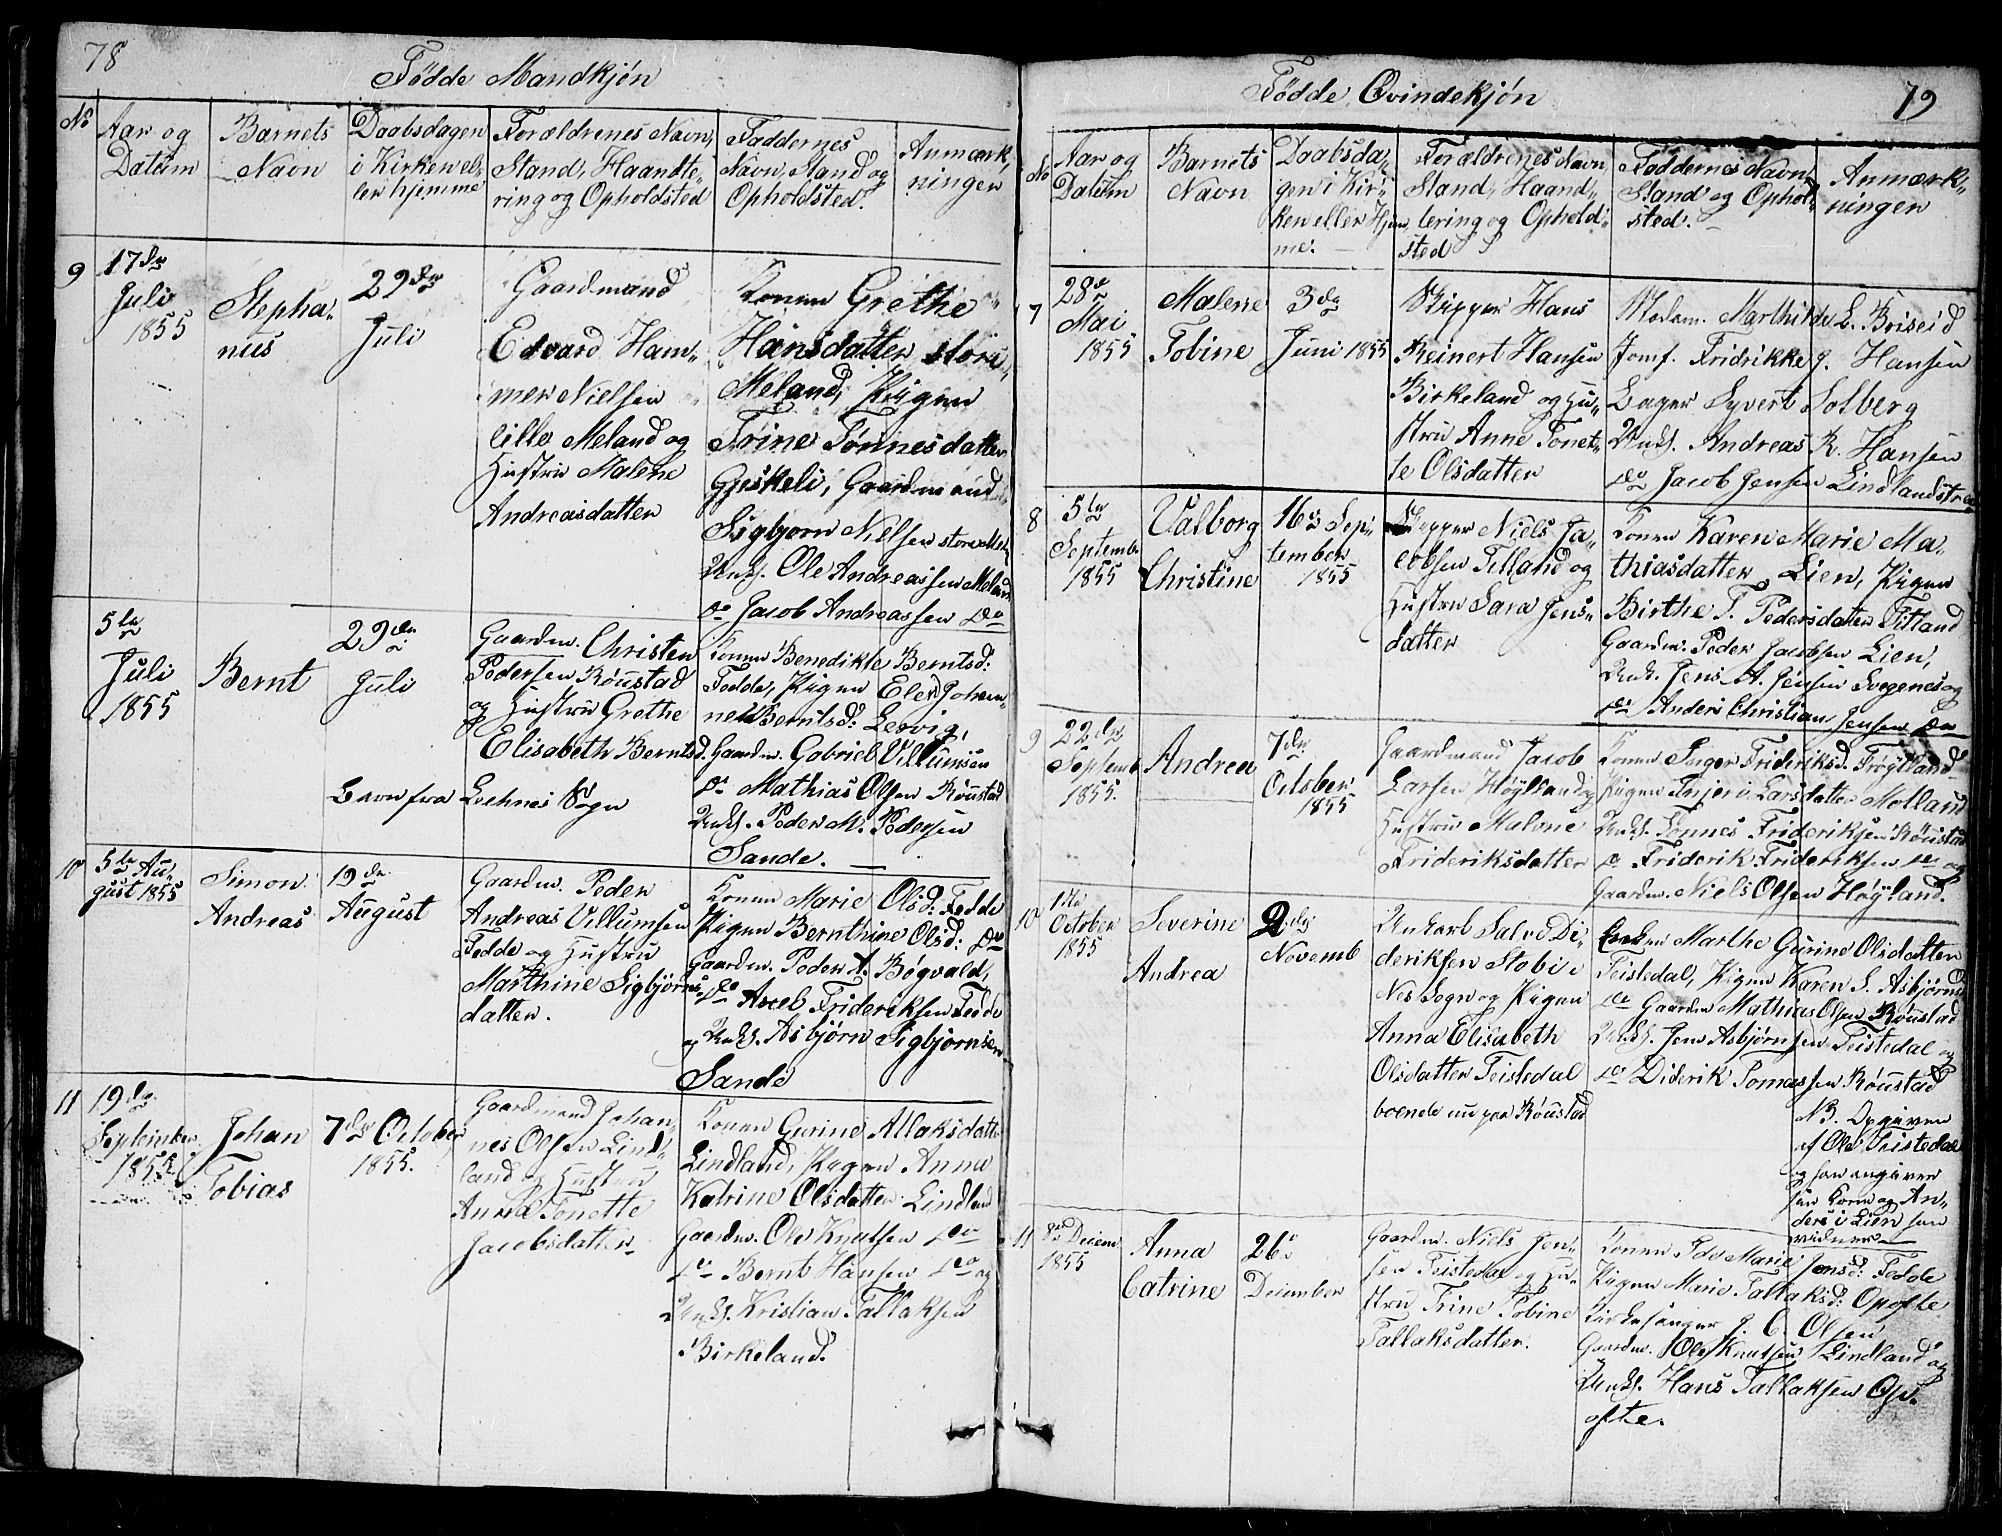 78
Fødde Mandkjøn
No
Aar og
Datum
Barnets
Navn
Daabsdagen
i Kirken el-
ler hjemme
Forældrenes Navn,
Stand, Haandte-
ring og Opholdsted
Faddernes
Navn, Stand og
Opholdsted.
Anmærk-
ningen
9
17de
Juli
1855
Stepha-
nus
29de
Juli
Gaardmand
Edvard Ham-
mer Nielsen
lille Meland og
Hustru Malene
Andreasdatter
Konen Grethe
Hansdatter store
Meland, Pigen
Trine Tønnesdatter
Gjeskeli, Gaardmand
Sigbjørn Nielsen store Meland
Unk. Ole Andreassen Meland
do Jacob Andreassen do
5te
Juli
1855
Bernt
29de
Juli
Gaardm. Christen
Pedersen Røustad
og Hustru Grethe
Elisabeth Berntsd.
Lavnfra Lyehnes Sogn
Konen Benedikte Berntsd:
Fedde, Pigen Elen Johan-
ne Berntsd: Lervig,
Gaardm. Gabriel Villumsen
do Mathias Olsen Røustad
Unk. Peder M. Pedersen
Sande.
10
5te Au-
gust 1855
Simon
Andreas
19de
August
Gaardm. Peder
Andreas Villumsen
Fedde og Hustru
Marthine Sigbjørns-
datter.
Konen Marie Olsd: Fedde
Pigen Bernthine Olsd: do
Gaardm. Peder A. Bøgvald,
do Axel Frideriksen Fedde
og Unk. Asbjørn Sigbjørnsen
Sande
11
19de
September
1855.
Johan
Tobias
7de October
1855.
Gaardmand Johan-
nes Olsen Lind-
land og Hustru
Anna Tonette
Jacobsdatter
Konen Gurine Allaksdatter
Lindland, Pigen Anna
Katrine Olsdatter Lindland
Gaardm. Ole Knutsen do
do Bernt Hansen do og
Unk. Kristian Tallaksen
Birkeland.
Fødde Qvindekjøn
79
No
Aar og
Datum
Barnets
Navn
Daabsda-
gen i Kir-
ken eller Hjem-
me.
Forældrenes Navn,
Stand, Haand-
tering og Ophold-
sted
Faddernes Navn
Stand og Ophold-
sted.
Anmærk-
ningen
7
28de
Mai
1855
Malene
Tobine
3de
Juni 1855
Skipper Hans
Reinert Hansen
Birkeland og Hu-
stru Anne Tonet-
te Olsdatter
Madam. Marthilde L. Briseid
Jomf. Fridrikke J. Hansen
Bager Syvert Solberg
Unk. Andreas R. Hansen
do Jacob Jensen Lindlandstrea
8
5te
Septembr
1855
Valborg
Christine
16de Sep-
tember
1855
Skipper Niels Ja-
cobsen Titland og
Hustru Sara Jens-
datter
Konen Karen Marie Ma-
thiasdatter Lien, Pigen
Birthe T. Pedersdatter Titland
Gaardm. Peder Jacobsen Lien,
Unk. Jens A. Jensen Svegenes og
do Anders Christian Jensen do
9
22de
Septemb
1855.
Andrea
7de
October
1855
Gaardmand Jacob
Larsen Høyland og
Hustru Malene
Frideriksdatter
Konen Inger Frideriksd. Frøytland
Pigen Inger Larsdatter Molland
Unk. Tønnes Frideriksen Røustad
do Friderik Frideriksen do og
Gaardm. Niels Olsen Høyland.
10
1te
October
1855
Severine
Andrea
2de
Novemb
Unkarl Salve Di-
deriksen Stobi i
Nes Sogn og Pigen
Anna Elisabeth
Olsdatter Teistedal
boende nu paa Røustad
Konen Marthe Gurine Olsdatter
Teistedal, Pigen Karen S. Asbjørnsd
do Gaardm Mathias Olsen Røustad
Unk. Jens Asbjørnsen Teistedal og
do Diderik Tomassen Røustad
NB. Opgiven
af Ole Teistedal
og han angiver
sin Kone og An-
ders i Lien som
vidner
11
8de Decem
1855
Anna
Catrine
26de
December
Gaardm. Niels Jen-
sen Teistedal og Hu-
stru Trine Tobine
Tallaksdatter.
Konen Ida Marie Jensd: Fedde
Pigen Marie Tallaksd: Opofte
Kirkesanger J. C. Olsen
Gaardm. Ole Knutsen Lindland og
Unk. Hans Tallaksen Op-
ofte.